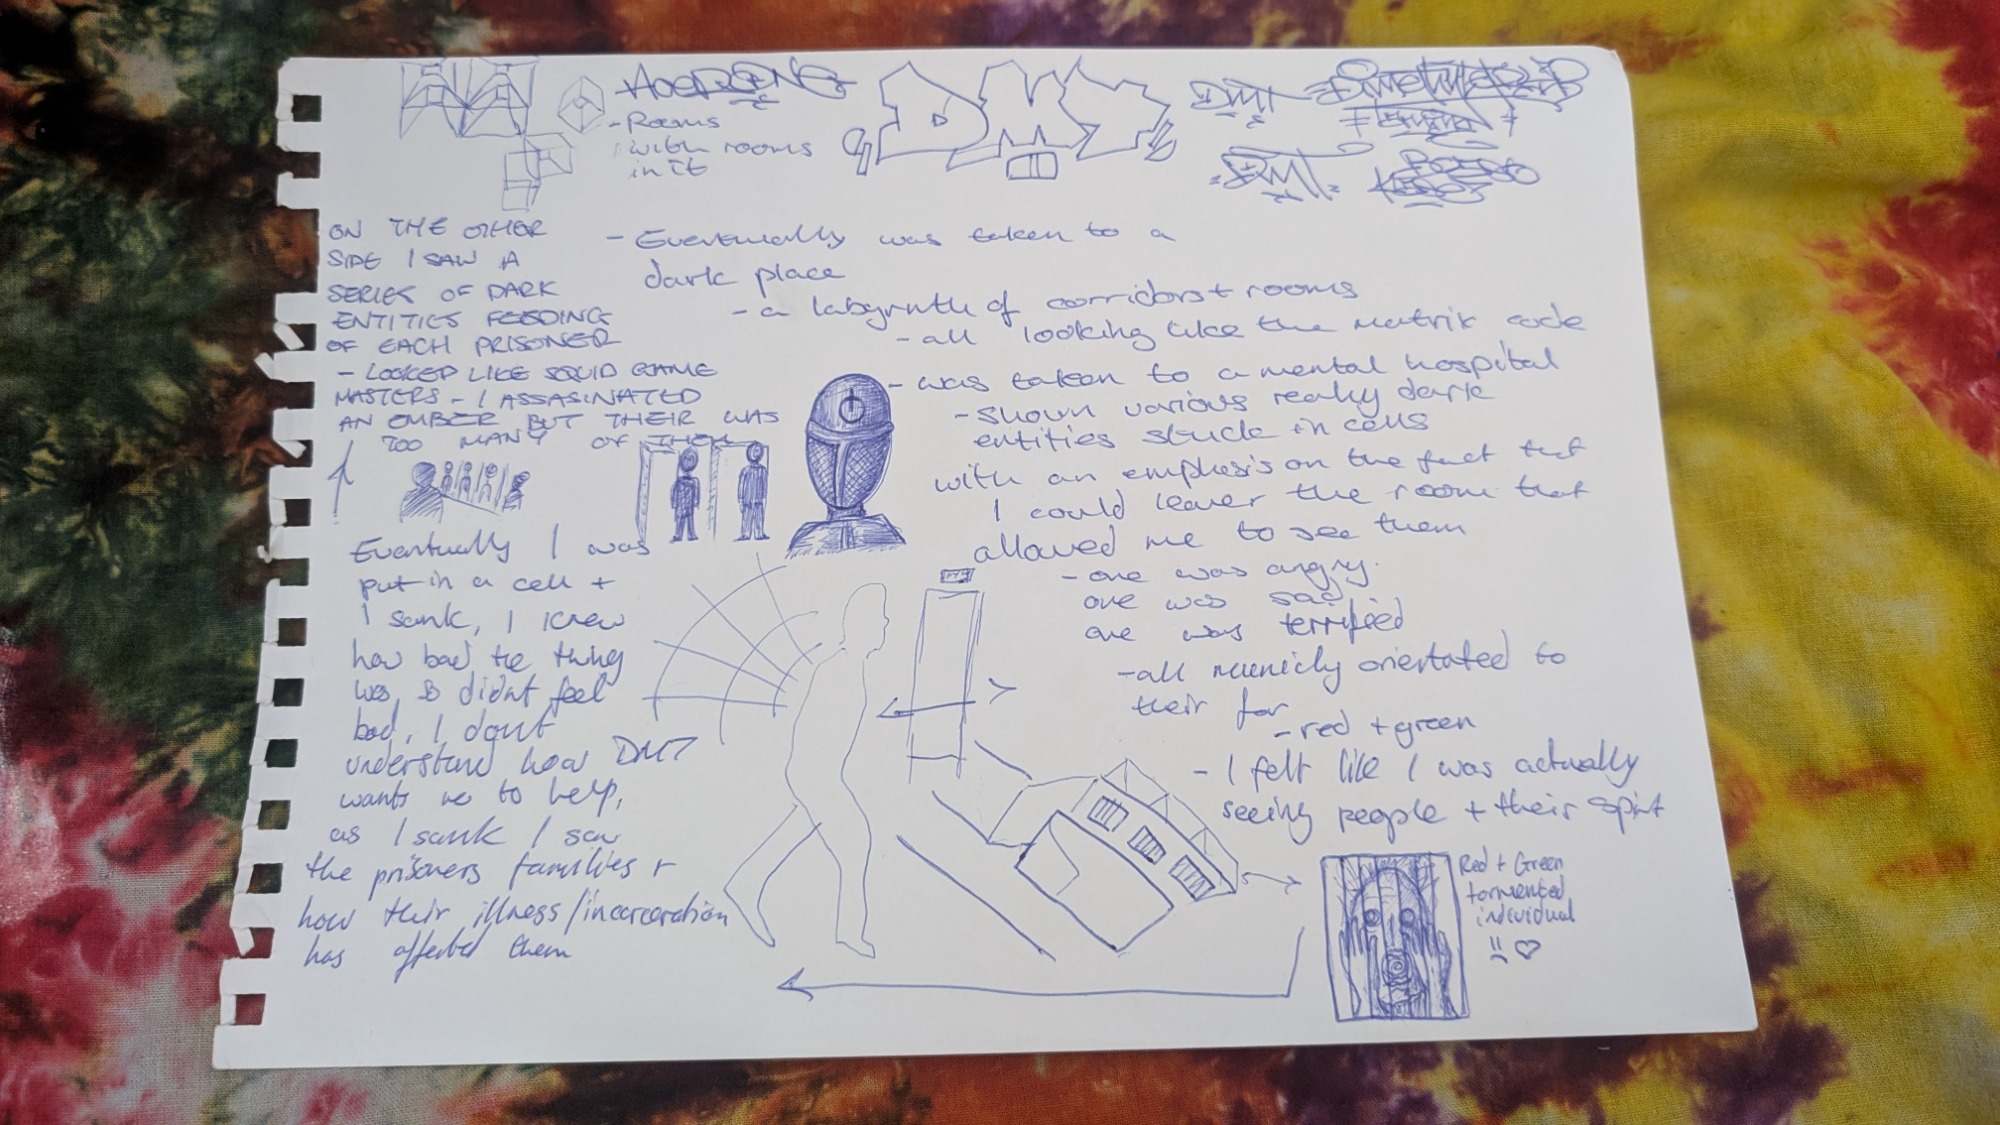 - Rooms
with rooms
in it
DMT
DMT
DMT
ON THE OTHER
SIDE I SAW A
SERIES OF DARK
ENTITIES FEEDING
OF EACH PRISONER
- LOOKED LIKE SQUID GAME
MASTERS - I ASSASINATED
AN OMBER BUT THEIR WAS
TOO MANY OF THEM
Eventually I was
put in a cell +
I sank, I knew
how bad the thing
was, so didnt feel
bad, I dont
understand how DMT
wants me to help,
as I sank I saw
the prisoners families +
how their illness/incarceration
has affected them
- Eventually was taken to a
dark place
- a labyrnth of corridors + rooms
- all looking like the matrix code
- was taken to a mental hospital
- shown various really dark
entities stuck in cells
with an emphasis on the fact that
I could leave the room that
allowed me to see them
- one was angry.
one was sad
one was terrified
- all orientated to
their
- red + green
- I felt like I was actually
seeing people + their spirit
Red + Green
tormented
individual